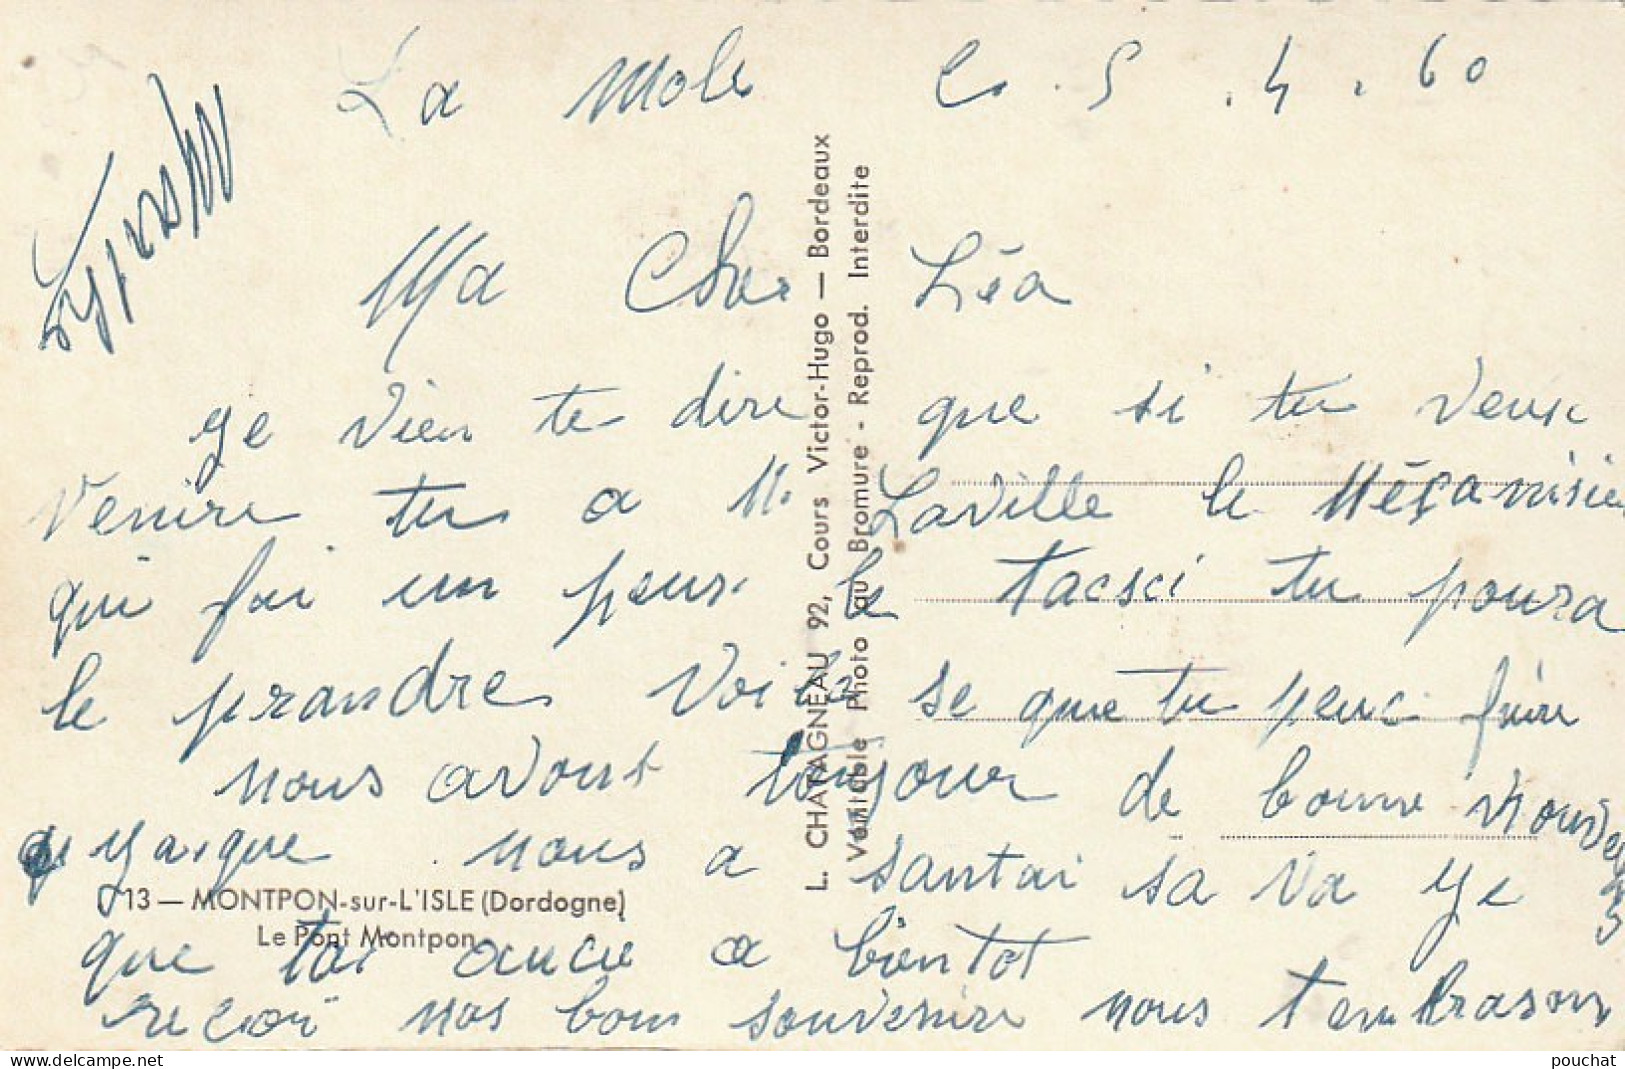 La Mole le. 5.4.60
Ma Cher Léa
ye vien te dire que si tu veux
venire tu a M. Laville le Méçanisien
qui fai un peux le tacsci tu poura
le prandre voila se que tu peuc faire
nous avont toujour de bonne nouvelle
yaique nous a santai sa va ye
que tai aucie a bientot
recoï nos bon souvenire nous t'embrason
13 — MONTPON-sur-L'ISLE (Dordogne)
Le Pont Montpon
L. CHATAGNEAU 92, Cours Victor-Hugo — Bordeaux
Véritable Photo au Bromure - Reprod. Interdite
delcampe.net
pouchat